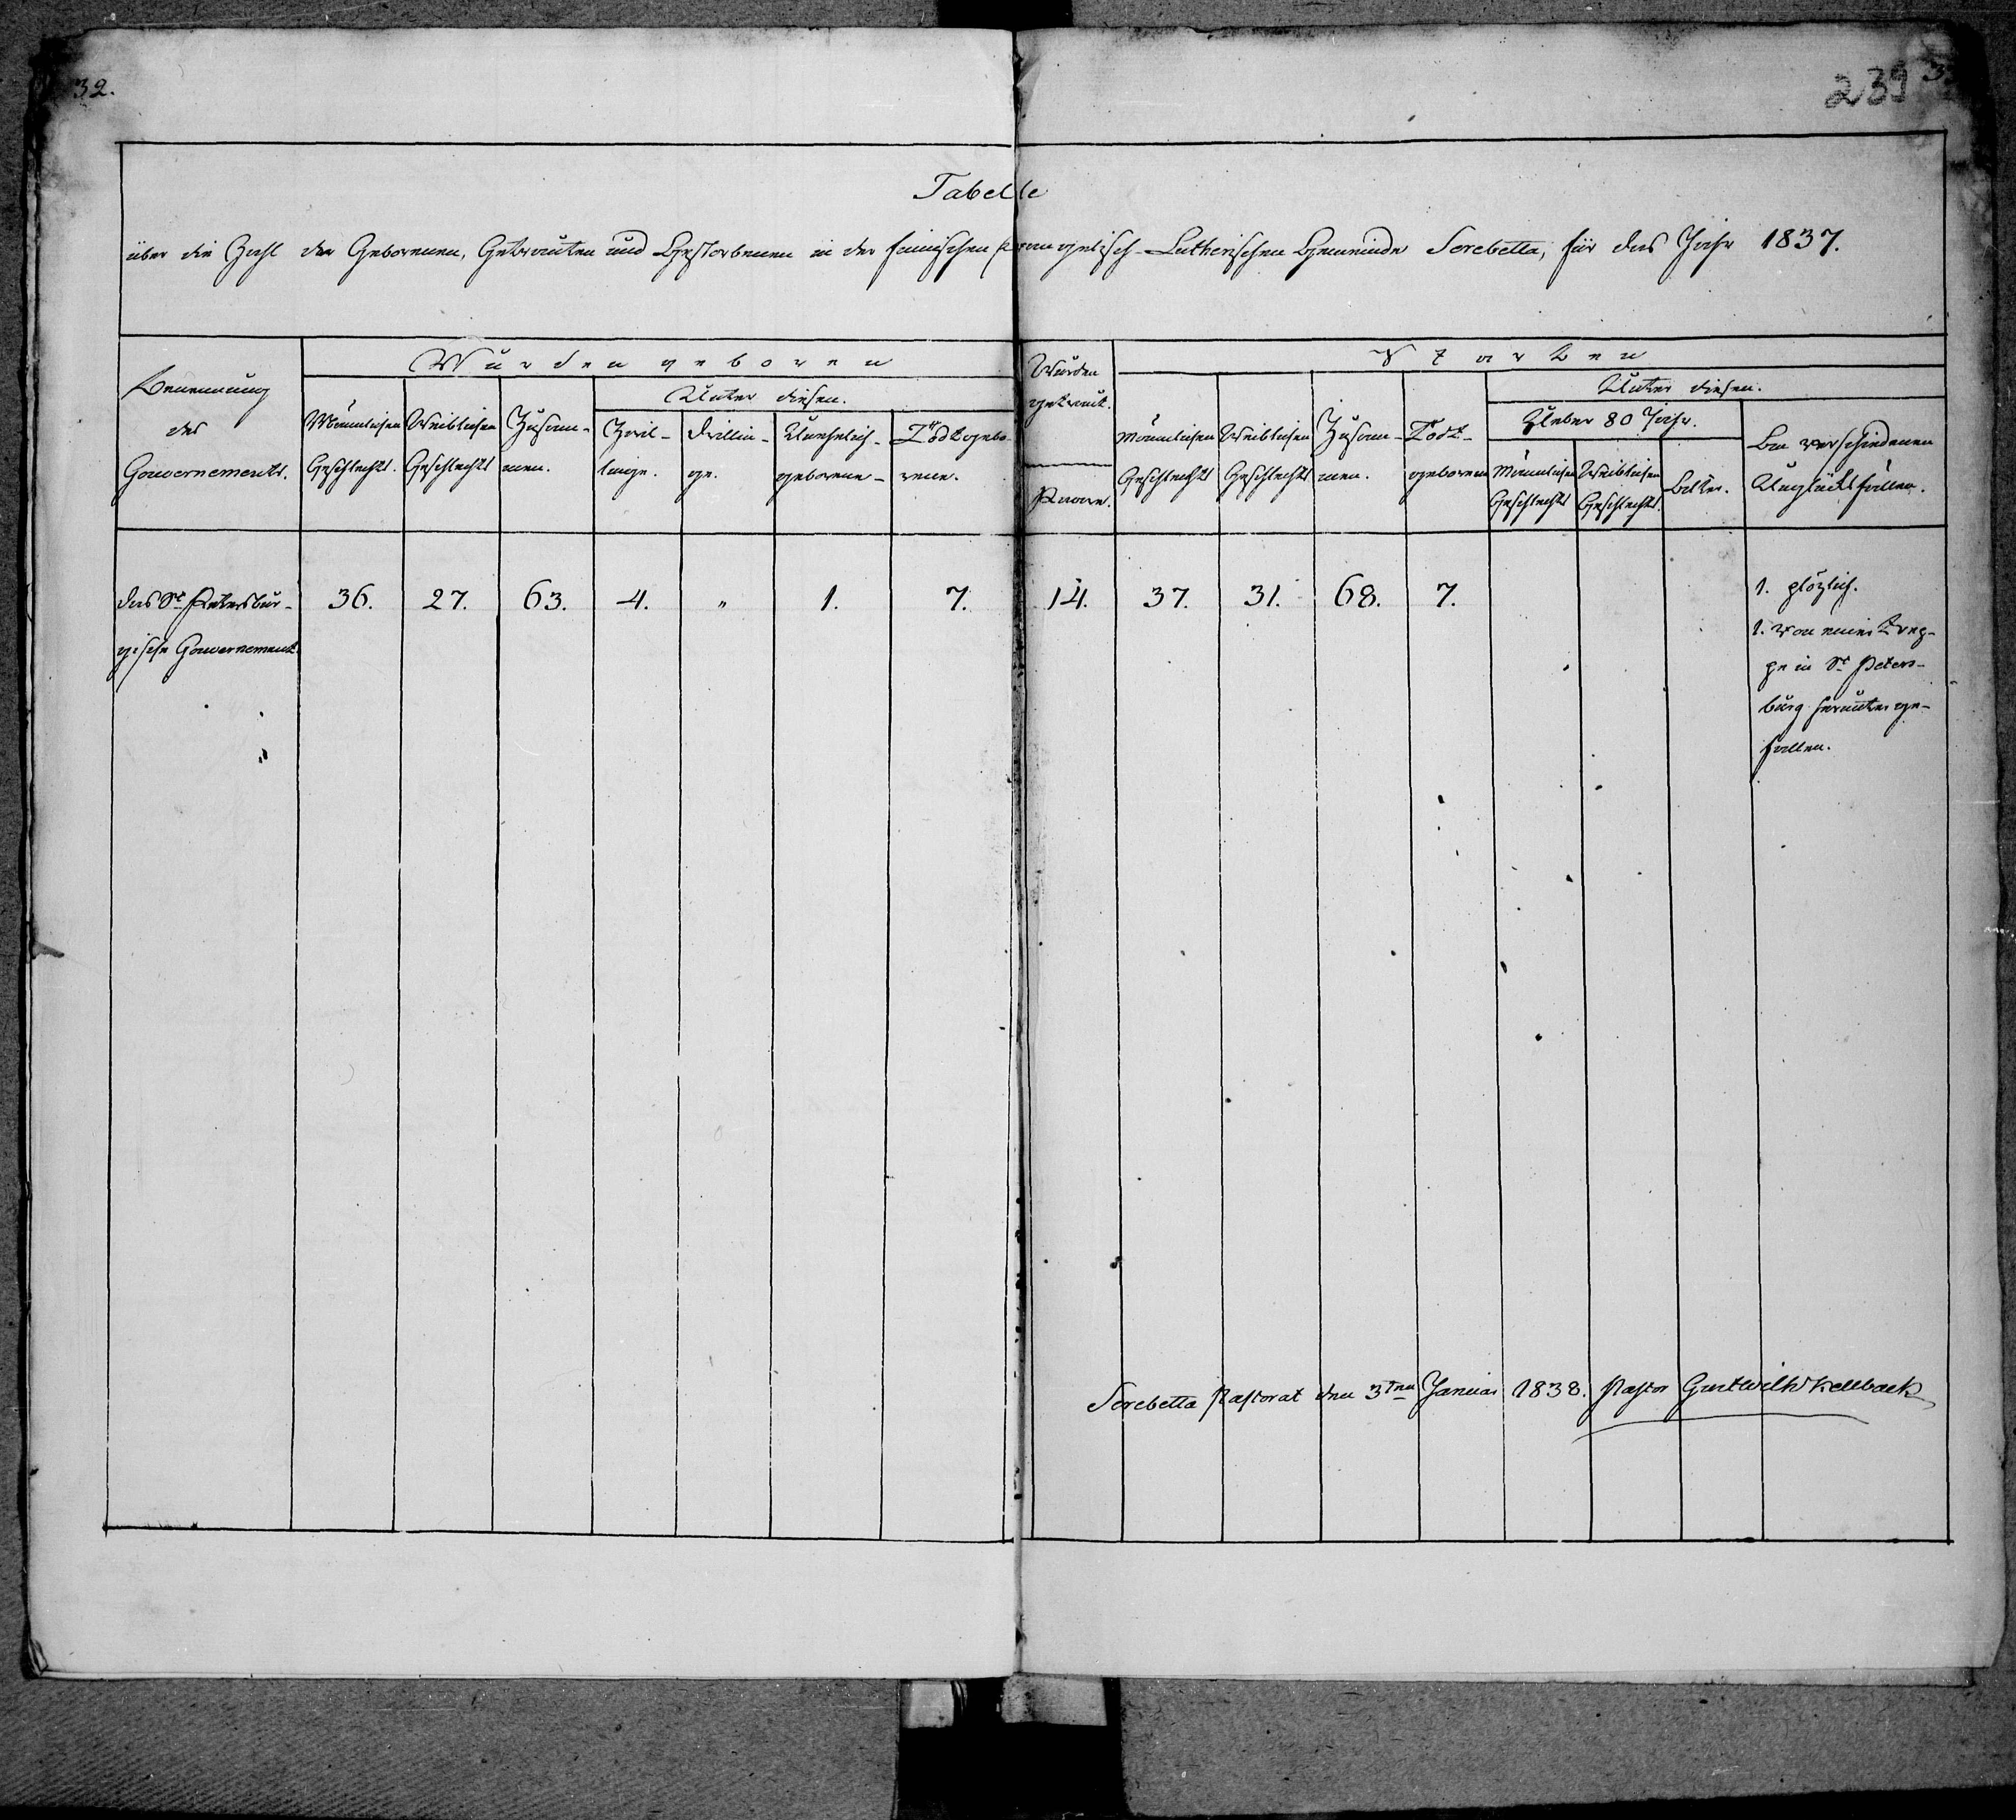 32.
239
Tabelle
über die Zahl der Geborenen, Getrauten und Gestorbenen in der finnischen evangelisch-Lutherischen Gemeinde Serebetta, für das Jahr 1837.
Benennung
des
Gouvernements.
Wurden geboren
Männlichen
Geschlechts.
Weiblichen
Geschlechts
Zusam-
men.
Unter diesen.
Zwil-
linge.
Drillin-
ge.
Unehelich-
geborene-
Todtgebo-
rene.
Wurden
getraut.
Paare.
Starben
Männlichen
Geschlechts
Weiblichen
Geschlechts
Zusam-
men.
Todt-
geborene
Unter diesen.
Ueber 80 Jahr.
Männlichen
Geschlechts
Weiblichen
Geschlechts.
verschiedenen
Unglücksfällen.
das St. Petersbur-
gische Gouvernement.
36.
27.
63.
4.
"
1.
7.
14.
37.
31.
68.
7.
1. plözlich.
1. von einer Trep-
pe in St. Peters-
burg herunter ge-
fallen.
Serebetta Pastorat den 3ten Januar 1838. Pastor Gust Wilh Kellback